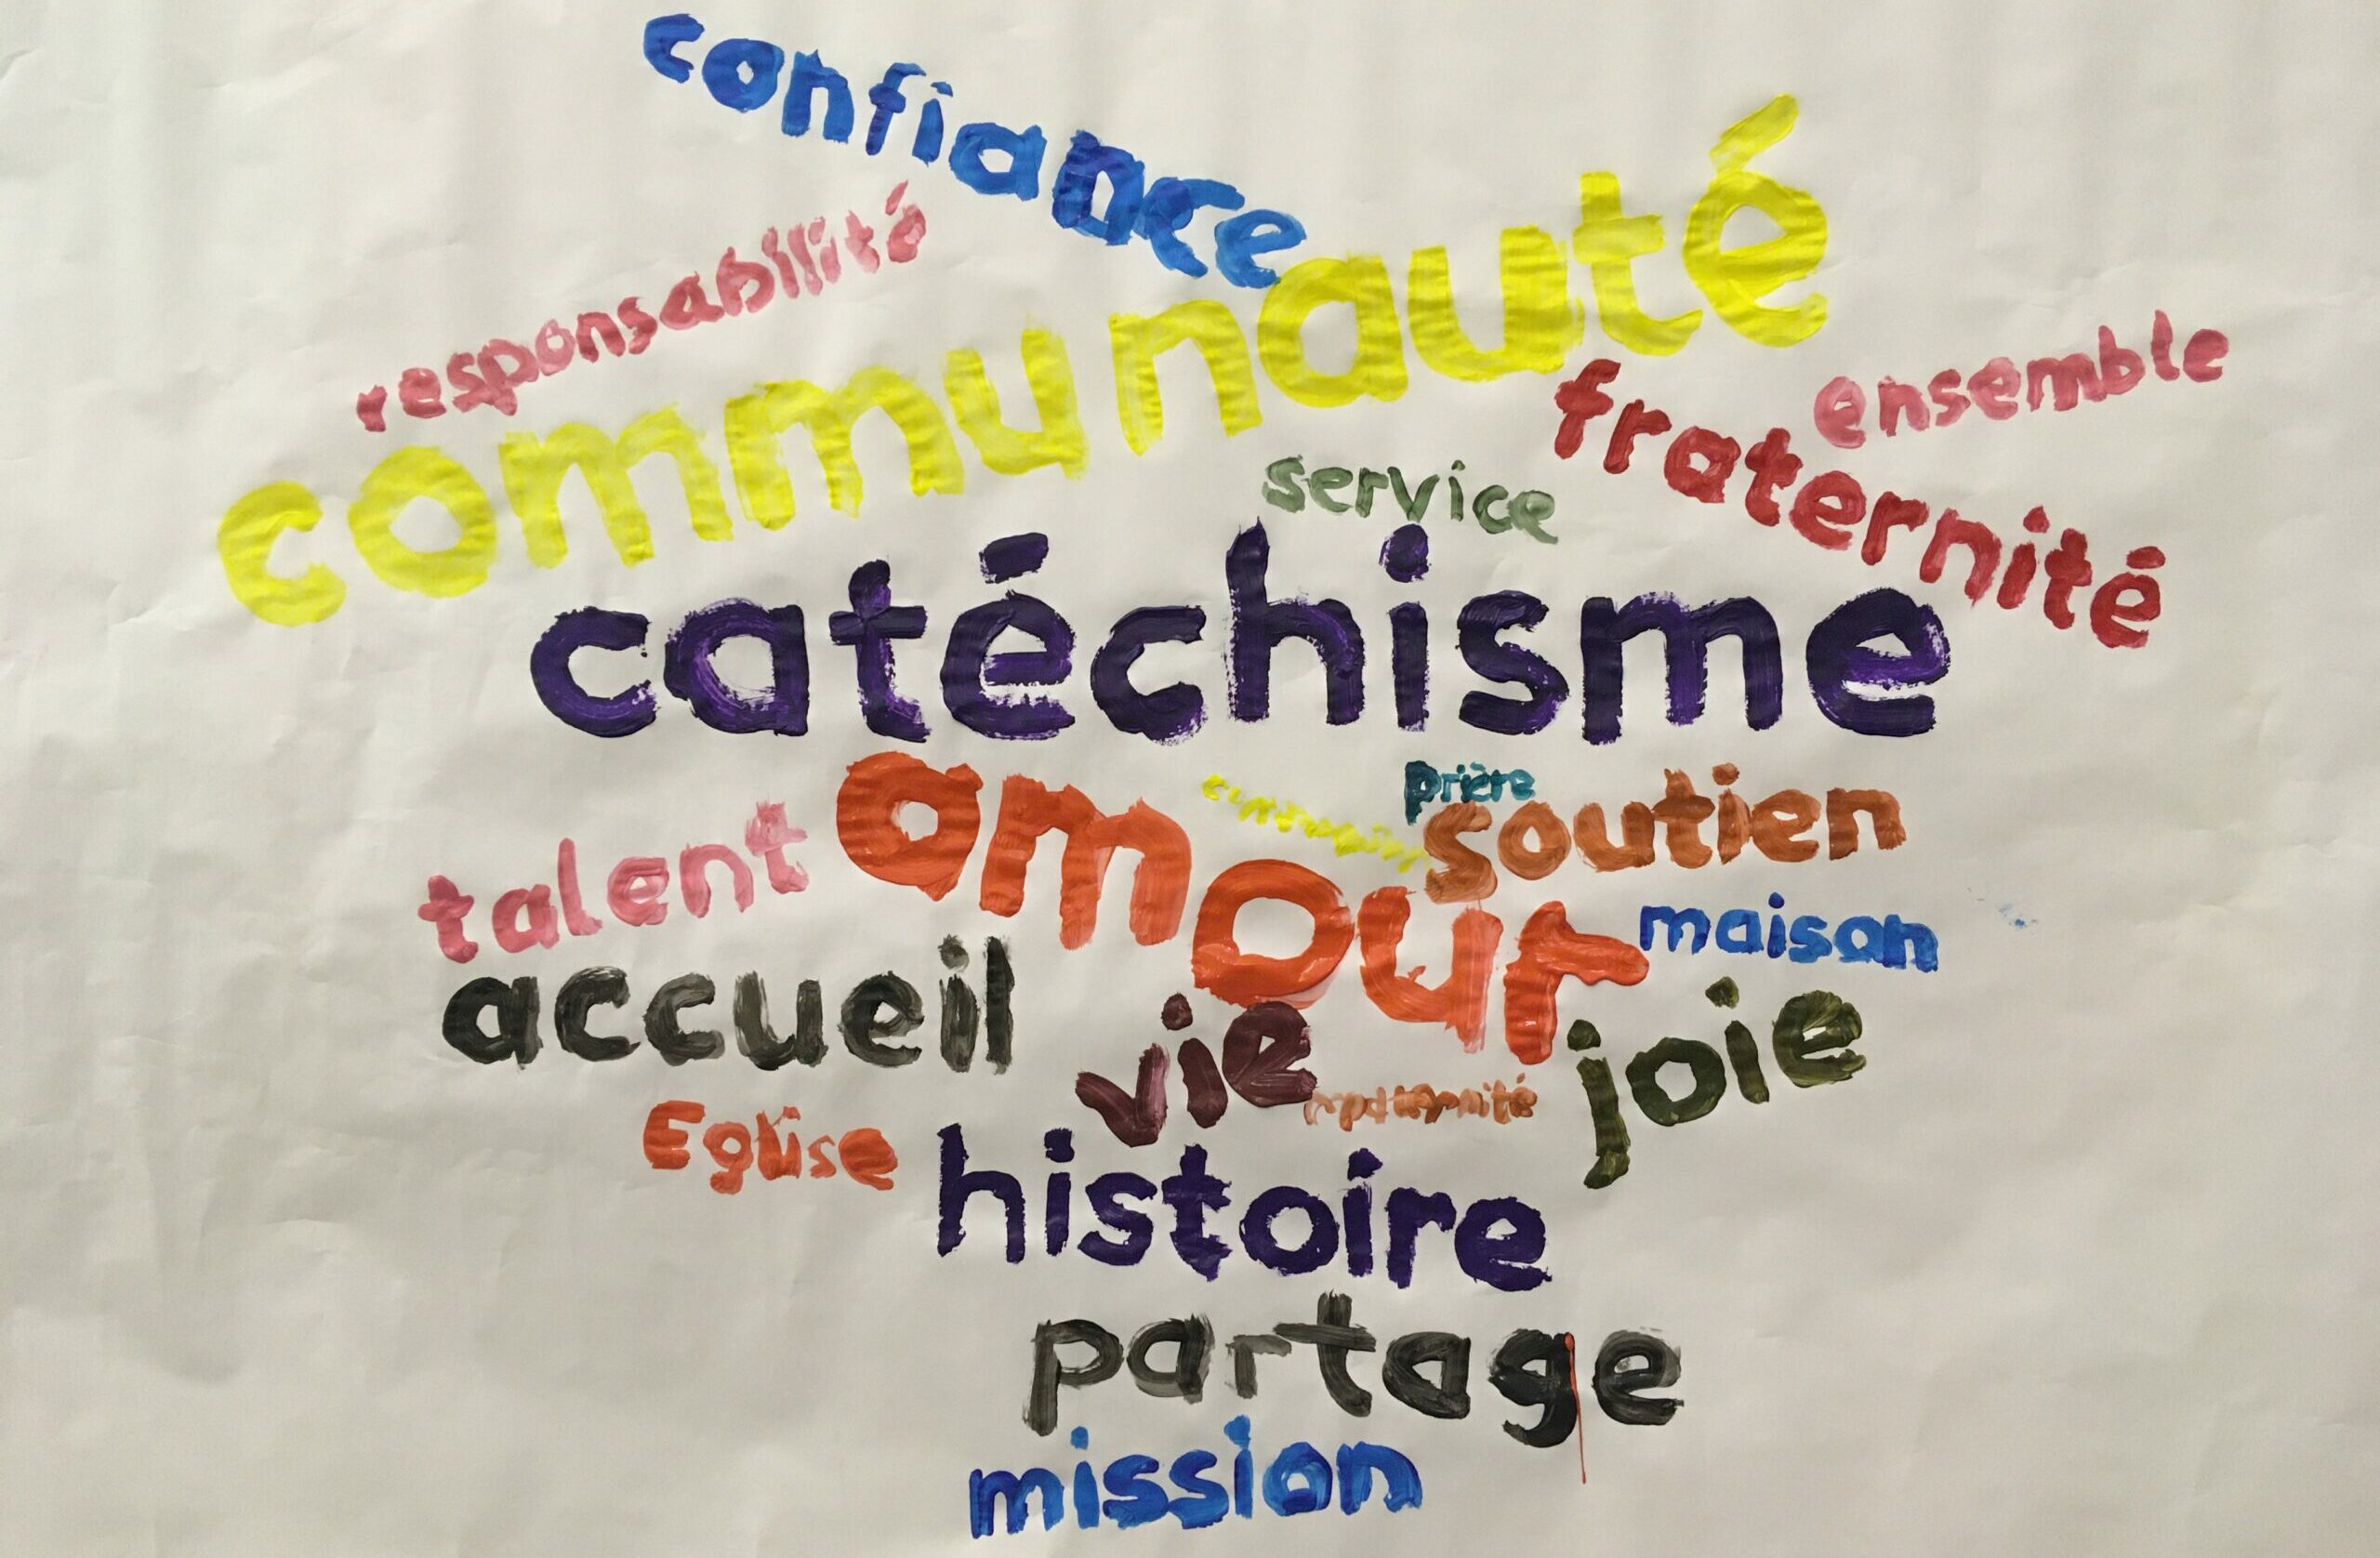 confiance
responsabilité
communauté
ensemble
fraternité
service
catéchisme
prière
amour
soutien
talent
maison
accueil
vie
joie
Eglise
histoire
partage
mission